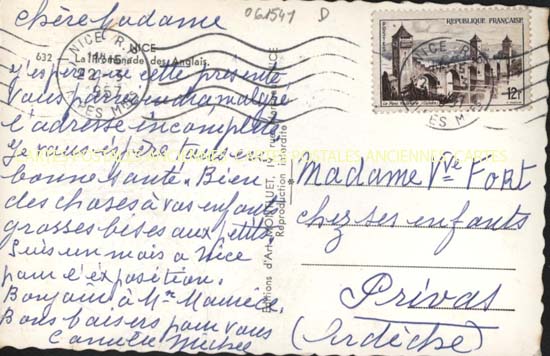 061541 D
chère Madame
632 - NICE
La Promenade des Anglais
NICE R.P.
22-3
1957
ALPES MMES
REPUBLIQUE FRANÇAISE
12F
J'espère que cette présente
vous parviendra malgré
l'adresse incomplète
Je vous espère tous en
bonne santé. Bien
des choses à vos enfants
grosses bises aux petits
Suis un mois à Nice
pour l'exposition.
Bonjour à Mr
Bons baisers pour vous
Camille
Editions d'Art
Reproduction interdite
CARTES POSTALES ANCIENNES
Madame Vve Fort
chez ses enfants
Privas
(Ardèche)